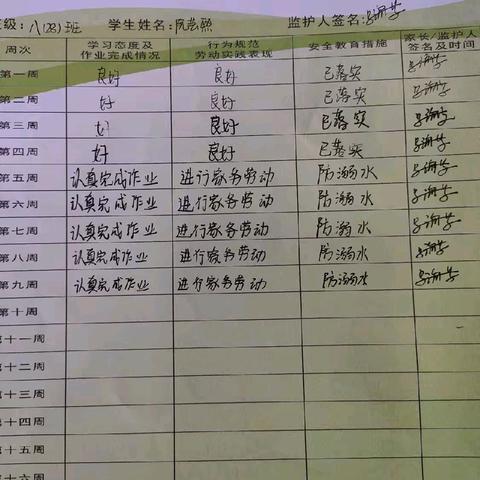 级：八(23)班 学生姓名： 监护人签名：
周次 学习态度及作业完成情况 行为规范劳动实践表现 安全教育措施 家长/监护人签名及时间
第一周 良好 良好 已落实
第二周 好 良好 已落实
第三周 好 良好 已落实
第四周 好 良好 已落实
第五周 认真完成作业 进行家务劳动 防溺水
第六周 认真完成作业 进行家务劳动 防溺水
第七周 认真完成作业 进行家务劳动 防溺水
第八周 认真完成作业 进行家务劳动 防溺水
第九周 认真完成作业 进行家务劳动 防溺水
第十周
第十一周
第十二周
第十三周
第十四周
第十五周
第十六周